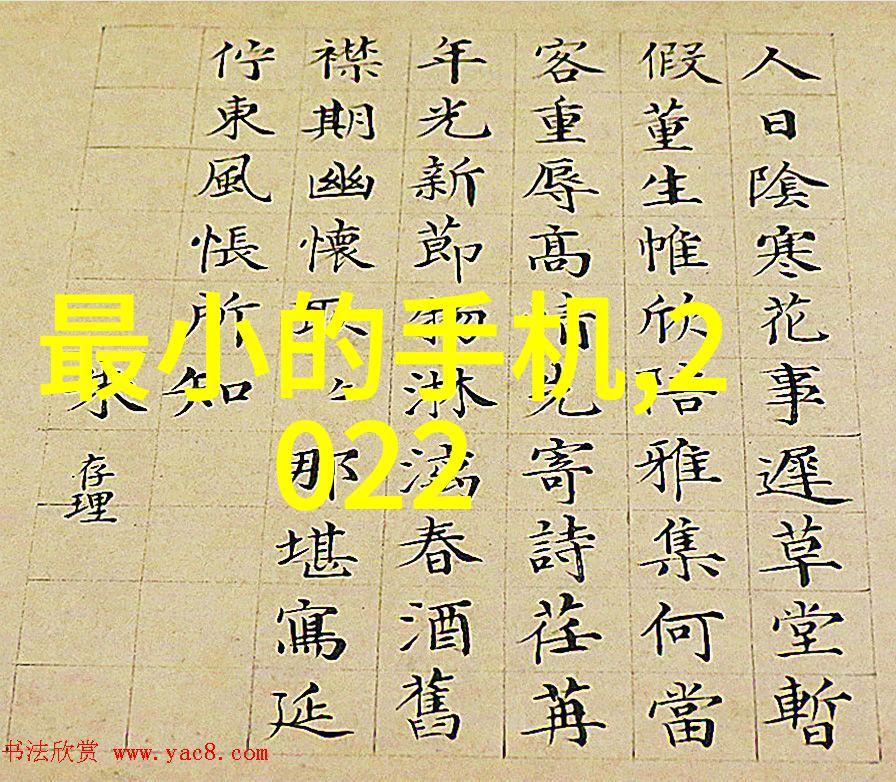 人日陰寒花事遲草堂暫
假董生帷欣陪雅集何當
客重辱高情先寄詩荏苒
年光新節物淋漓春酒舊
襟期幽懷耿々那堪寫延
佇東風悵所知
朱存理
最小的手机,2
022
书法欣赏 www.yac8.com